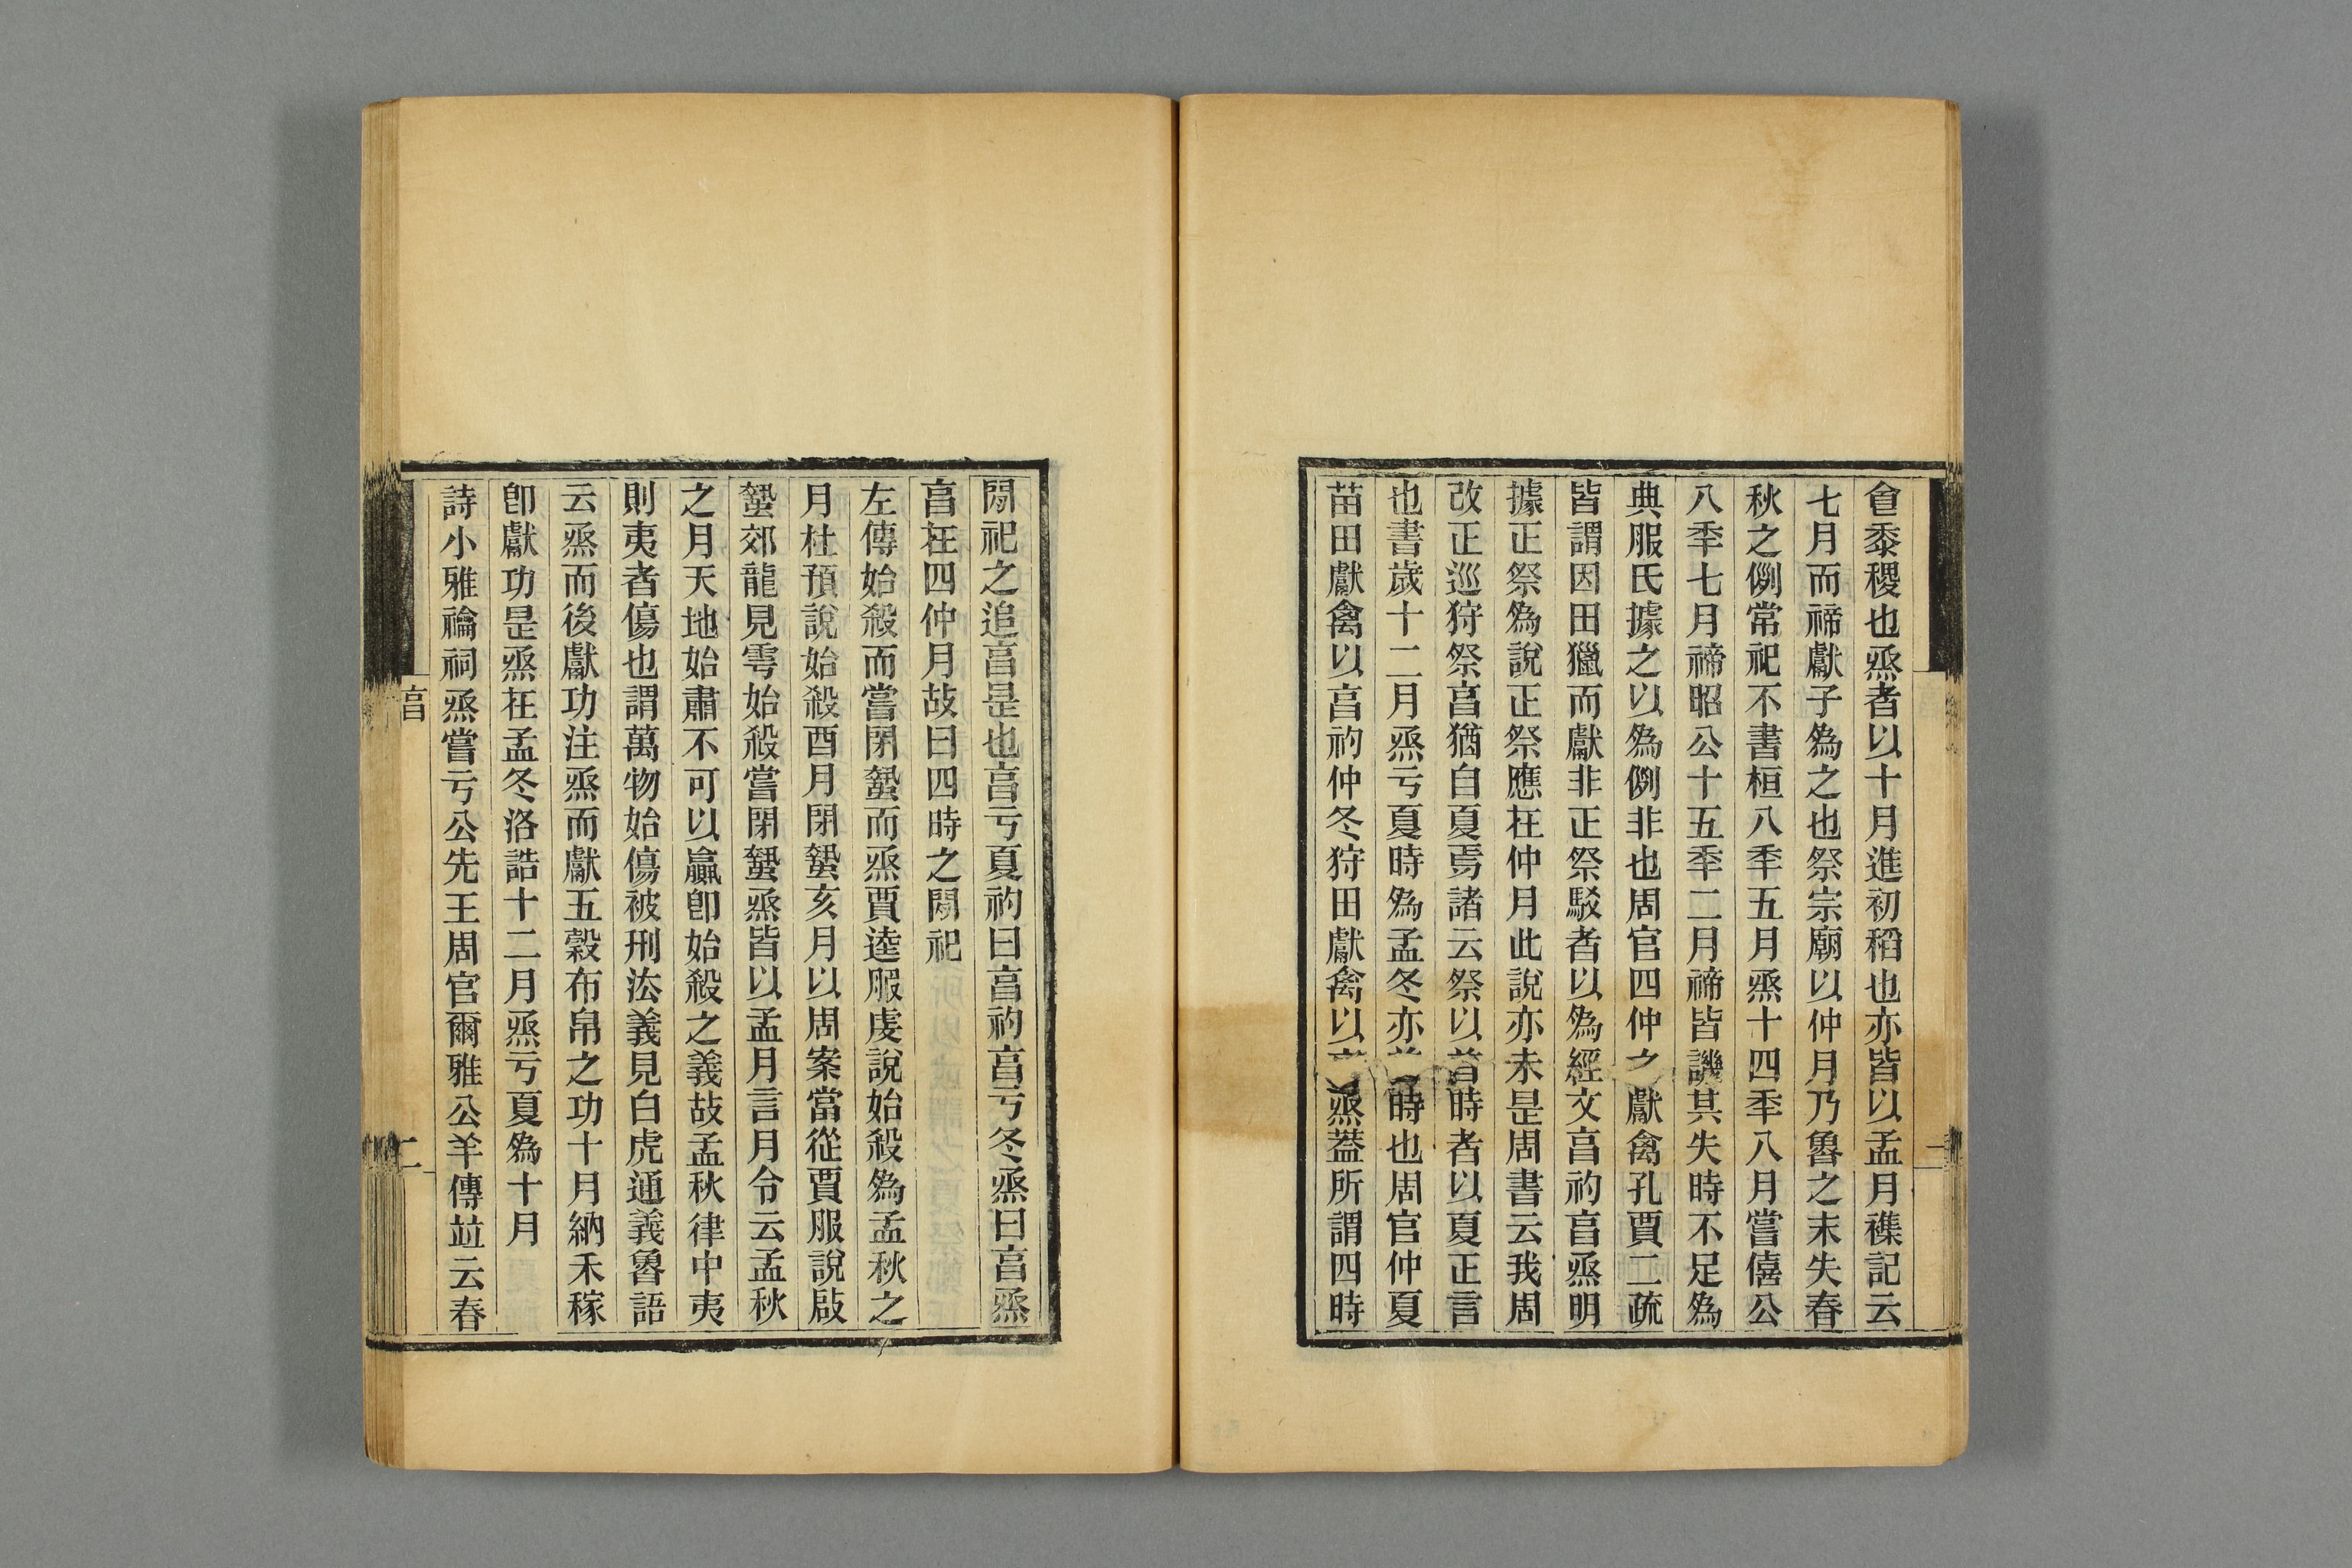 㑹黍稷也烝者以十月進初稻也亦皆以孟月襍記云
七月而禘獻子爲之也祭宗廟以仲月乃魯之末失春
秋之例常祀不書桓八秊五月烝十四秊八月嘗僖公
八秊七月禘昭公十五秊二月禘皆譏其失時不足爲
典服氏據之以爲例非也周官四仲之獻禽孔賈二疏
皆謂因田獵而獻非正祭駁者以爲經文亯礿亯烝明
據正祭爲說正祭應在仲月此說亦未是周書云我周
改正巡狩祭亯猶自夏焉諸云祭以首時者以夏正言
也書歲十二月烝亏夏時爲孟冬亦首時也周官仲夏
苗田獻禽以亯礿仲冬狩田獻禽以烝葢所謂四時
閒祀之追亯是也亯亏夏礿曰亯礿亯亏冬烝曰亯烝
亯在四仲月故曰四時之閒祀
左傳始殺而嘗閉蟄而烝賈逵服虔說始殺爲孟秋之
月杜預說始殺酉月閉蟄亥月以周案當從賈服說啟
蟄郊龍見雩始殺嘗閉蟄烝皆以孟月言月令云孟秋
之月天地始肅不可以贏卽始殺之義故孟秋律中夷
則夷者傷也謂萬物始傷被刑法義見白虎通義魯語
云烝而後獻功注烝而獻五穀布帛之功十月納禾稼
卽獻功是烝在孟冬洛誥十二月烝亏夏爲十月
詩小雅禴祠烝嘗亏公先王周官爾雅公羊傳竝云春
亯
二